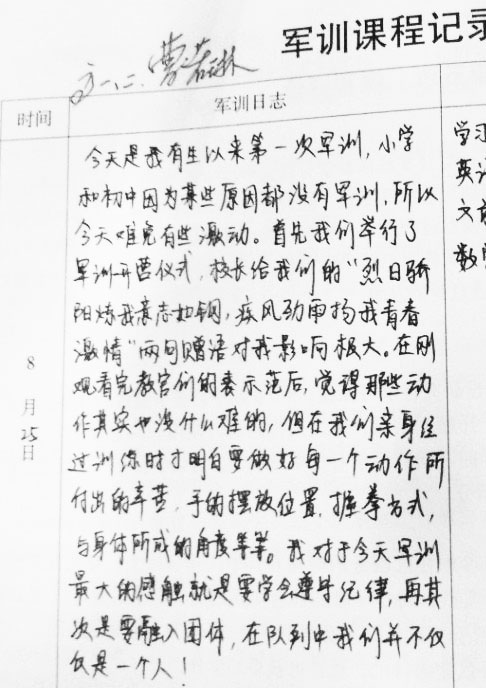 军训课程记录
高一二. 曹若琳
时间
军训日志
今天是我有生以来第一次军训，小学
和初中因为某些原因都没有军训，所以
今天难免有些激动。首先我们举行了
军训开营仪式，校长给我们的“烈日骄
阳炼我意志如钢，疾风劲雨扬我青春
激情”两句赠语对我影响极大。在刚
观看完教官们的表示范后，觉得那些动
作其实也没什么难的，但在我们亲身经
过训练时才明白要做好每一个动作所
付出的辛苦，手的摆放位置，握拳方式，
与身体所成的角度等等。我对于今天军训
最大的感触就是要学会遵守纪律，再其
次是要融入团体，在队列中我们并不仅
仅是一个人！
8
月
25
日
学习
英语
数学